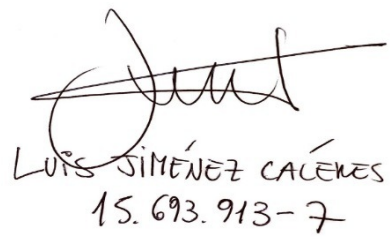 LUIS JIMÉNEZ CACÉRES
15.693.913-7